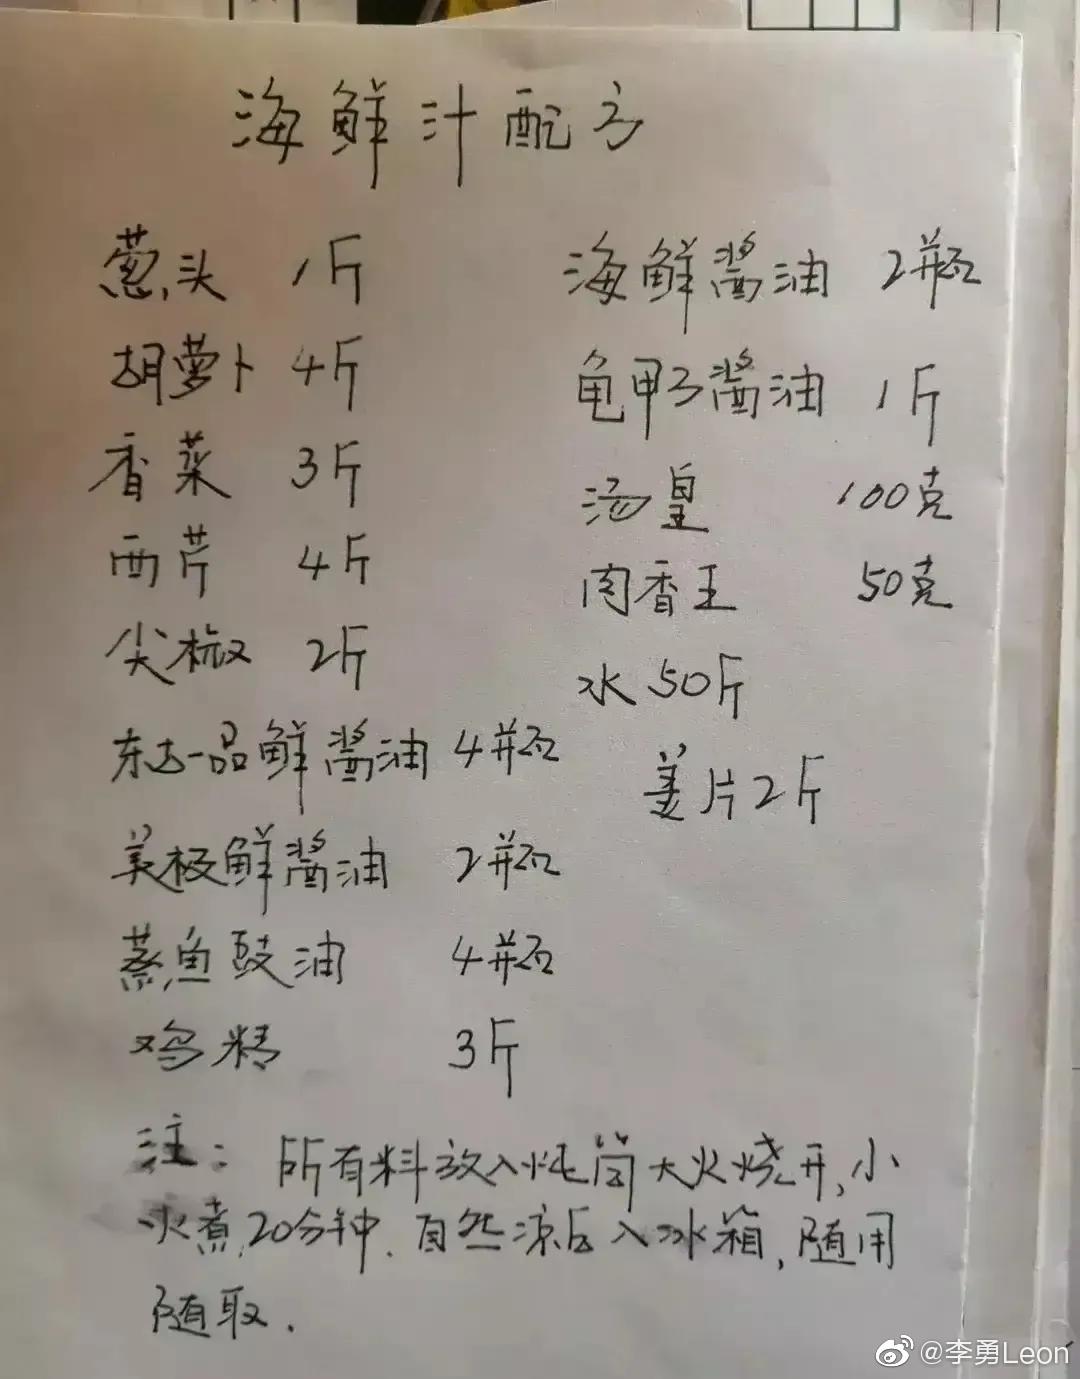 海鲜汁配方
葱头 1斤
胡萝卜 4斤
香菜 3斤
西芹 4斤
尖椒 2斤
东古一品鲜酱油 4瓶
美极鲜酱油 2瓶
蒸鱼豉油 4瓶
鸡精 3斤
海鲜酱油 2瓶
龟甲万酱油 1斤
汤皇 100克
肉香王 50克
水 50斤
姜片2斤
注：所有料放入炖筒大火烧开,小
火煮,20分钟.自然凉后入冰箱,随用
随取.
@李勇Leon